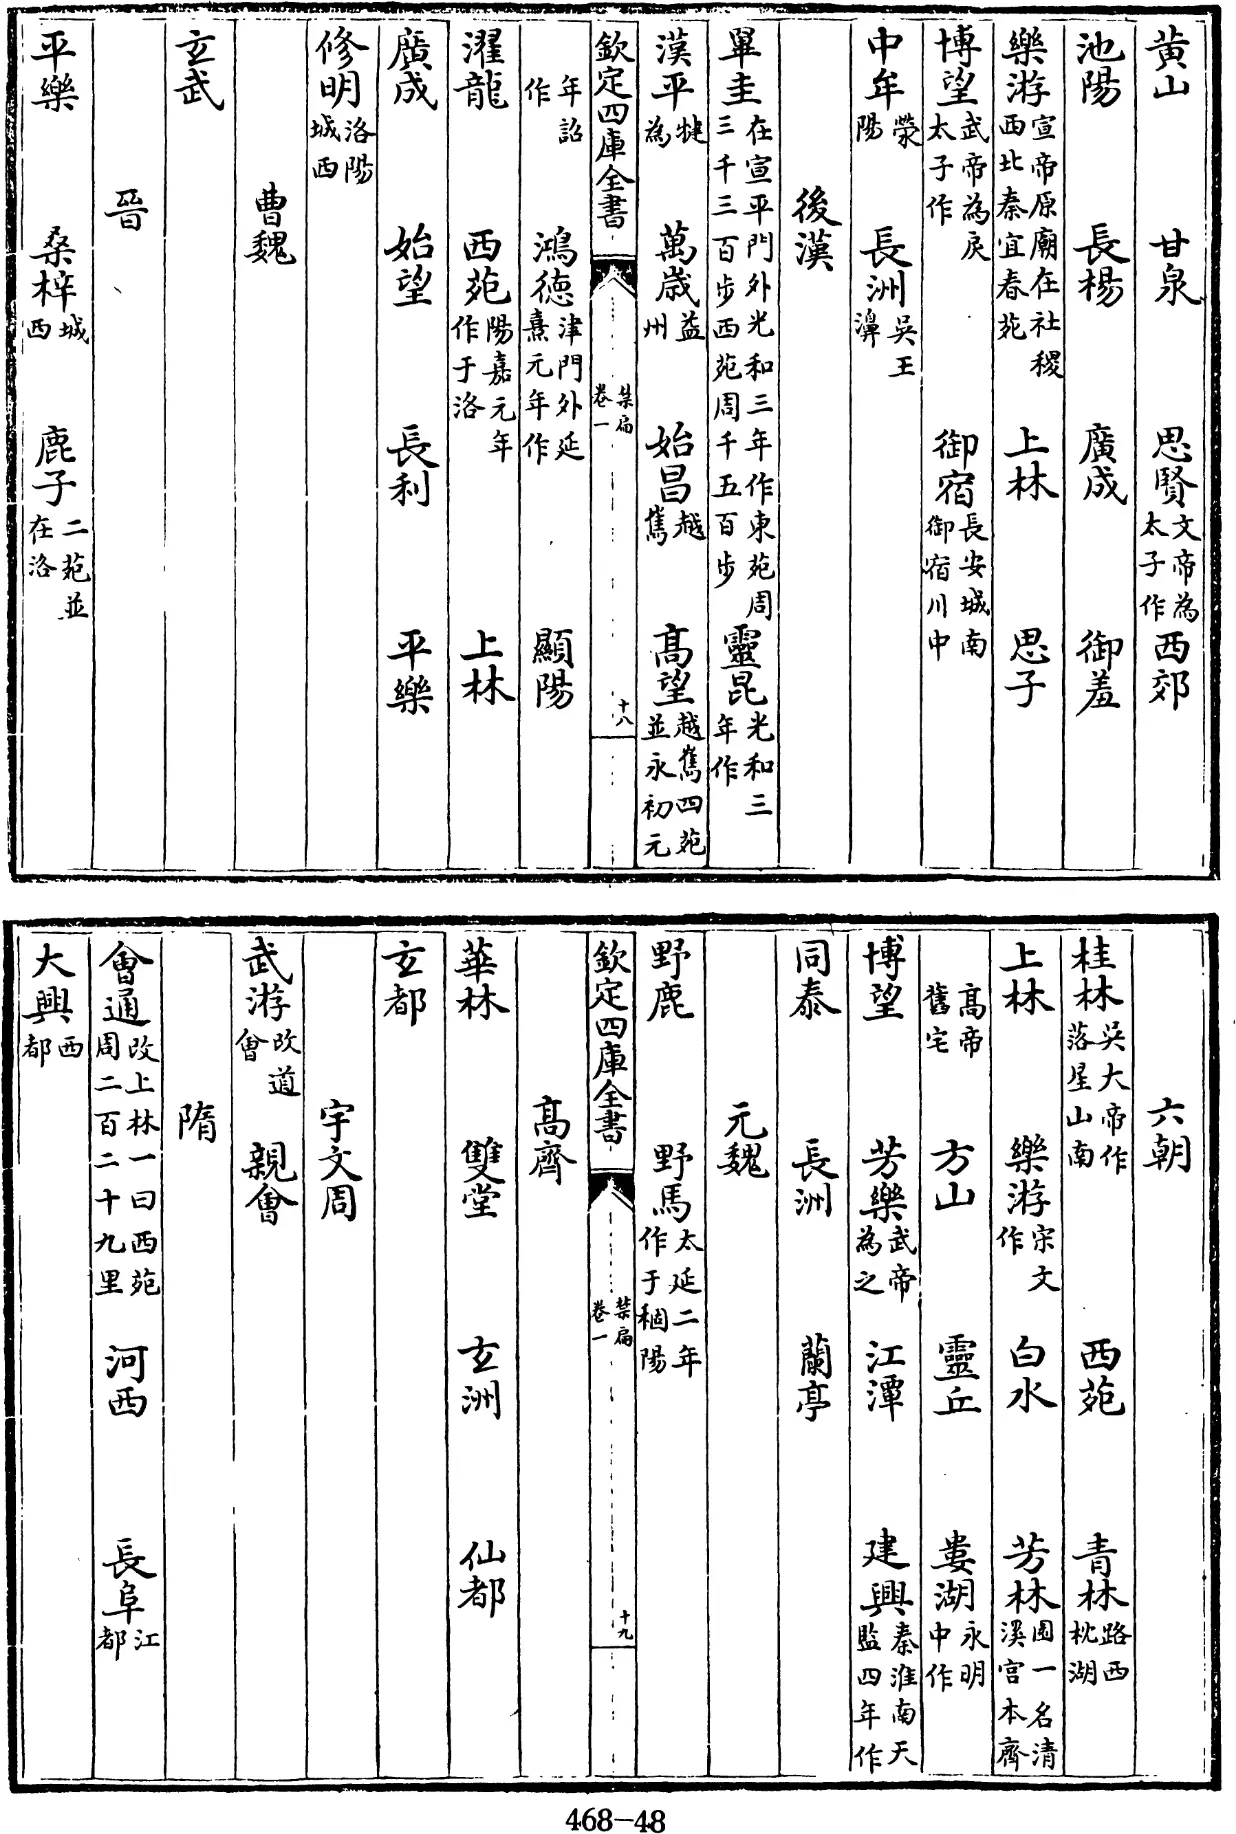 黄山 甘泉 思賢文帝為太子作 西郊
池陽 長楊 廣成 御羞
樂游宣帝原廟在社稷西北秦宜春苑 上林 思子
博望武帝為戾太子作 御宿長安城南御宿川中
中牟滎陽 長洲吳王濞
後漢
畢圭在宣平門外光和三年作東苑周三千三百步西苑周千五百步 靈昆光和三年作
漢平犍為 萬歳益州 始昌越嶲 髙望越嶲四苑並永初元
欽定四庫全書 禁扁卷一 十八
年詔作 鴻德津門外延熹元年作 顯陽
濯龍 西苑陽嘉元年作于洛 上林
廣成 始望 長利 平樂
修明洛陽城西
曹魏
玄武
晉
平樂 桑梓城西 鹿子二苑並在洛
六朝
桂林吳大帝作落星山南 西苑 青林路西枕湖
上林 樂游宋文作 白水 芳林園一名清溪宫本齊
髙帝舊宅 方山 靈丘 婁湖永明中作
博望 芳樂武帝為之 江潭 建興秦淮南天監四年作
同泰 長洲 蘭亭
元魏
野鹿 野馬太延二年作于稒陽
欽定四庫全書 禁扁卷一 十九
髙齊
華林 雙堂 玄洲 仙都
玄都
宇文周
武游改道會 親會
隋
會通改上林一曰西苑周二百二十九里 河西 長阜江都
大興西都
468-48